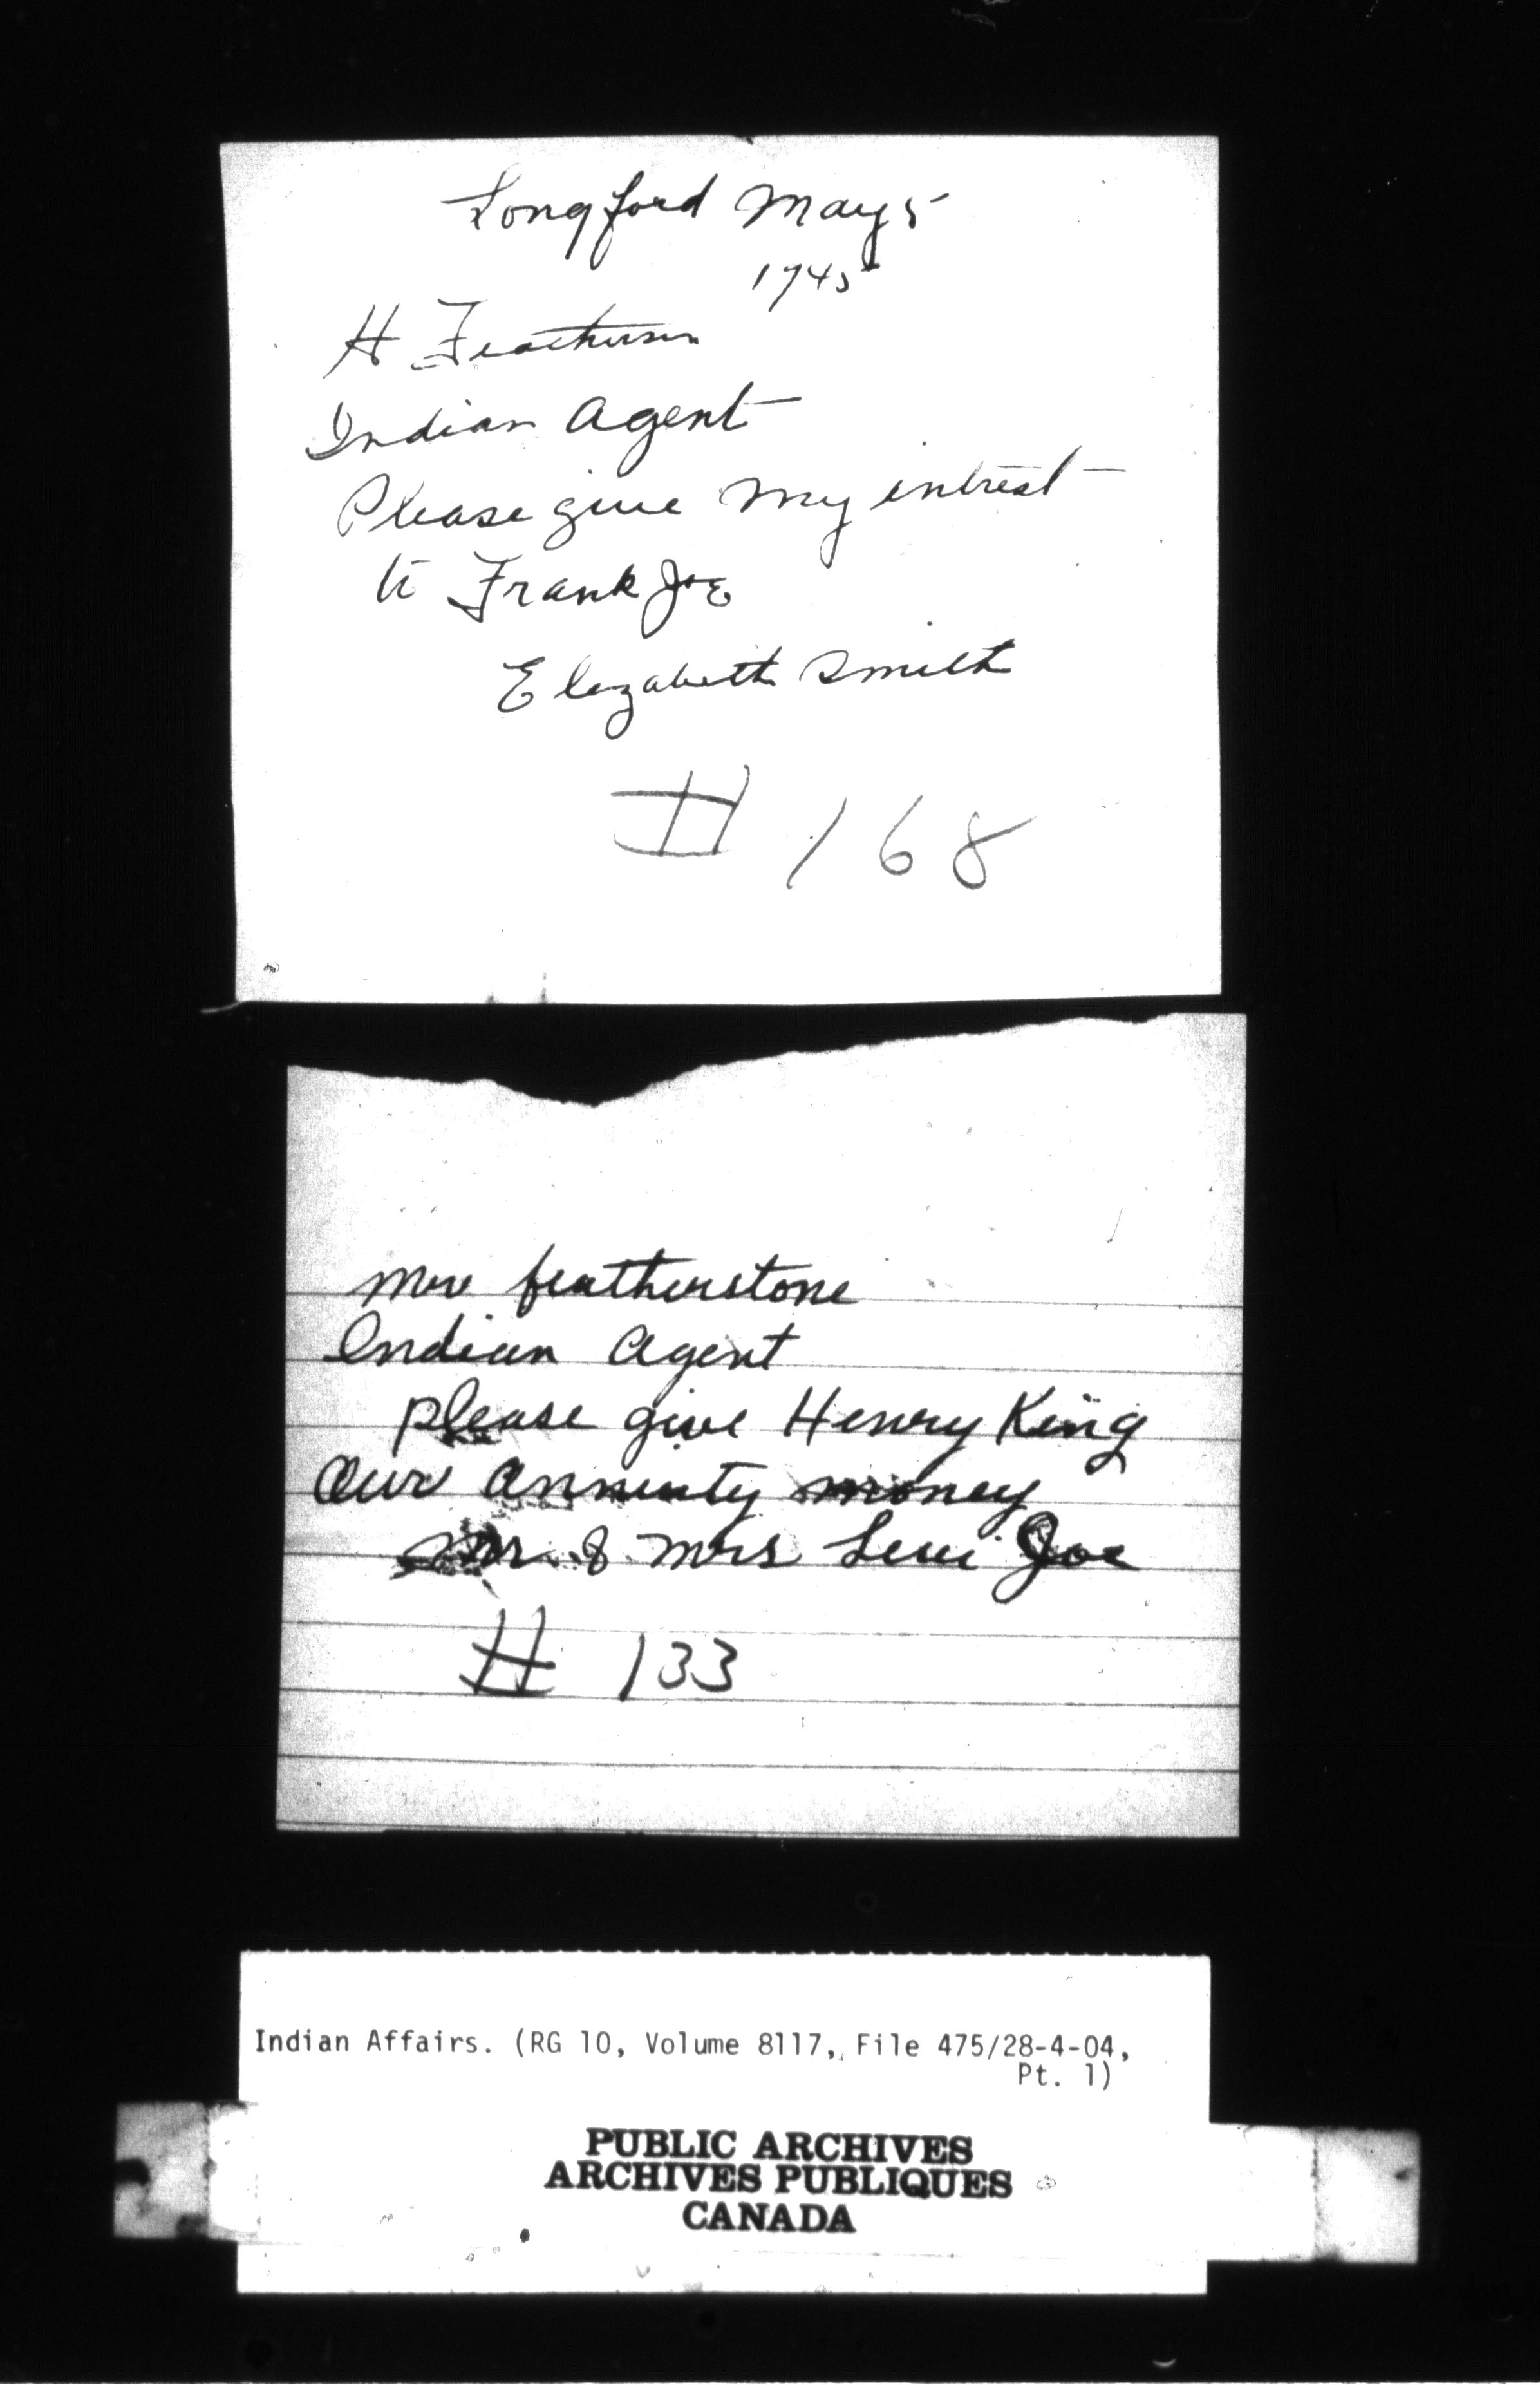 Longford May 5
1945
H Feathersen
Indian Agent
Please give my intrest
to Frank Joe
Elizabeth Smith
# 168
Mr featherstone
Indian Agent
please give Henry King
Our annuity money
Mr & Mrs Levi Joe
# 133
Indian Affairs. (RG 10, Volume 8117, File 475/28-4-04,
Pt. 1)
PUBLIC ARCHIVES
ARCHIVES PUBLIQUES
CANADA